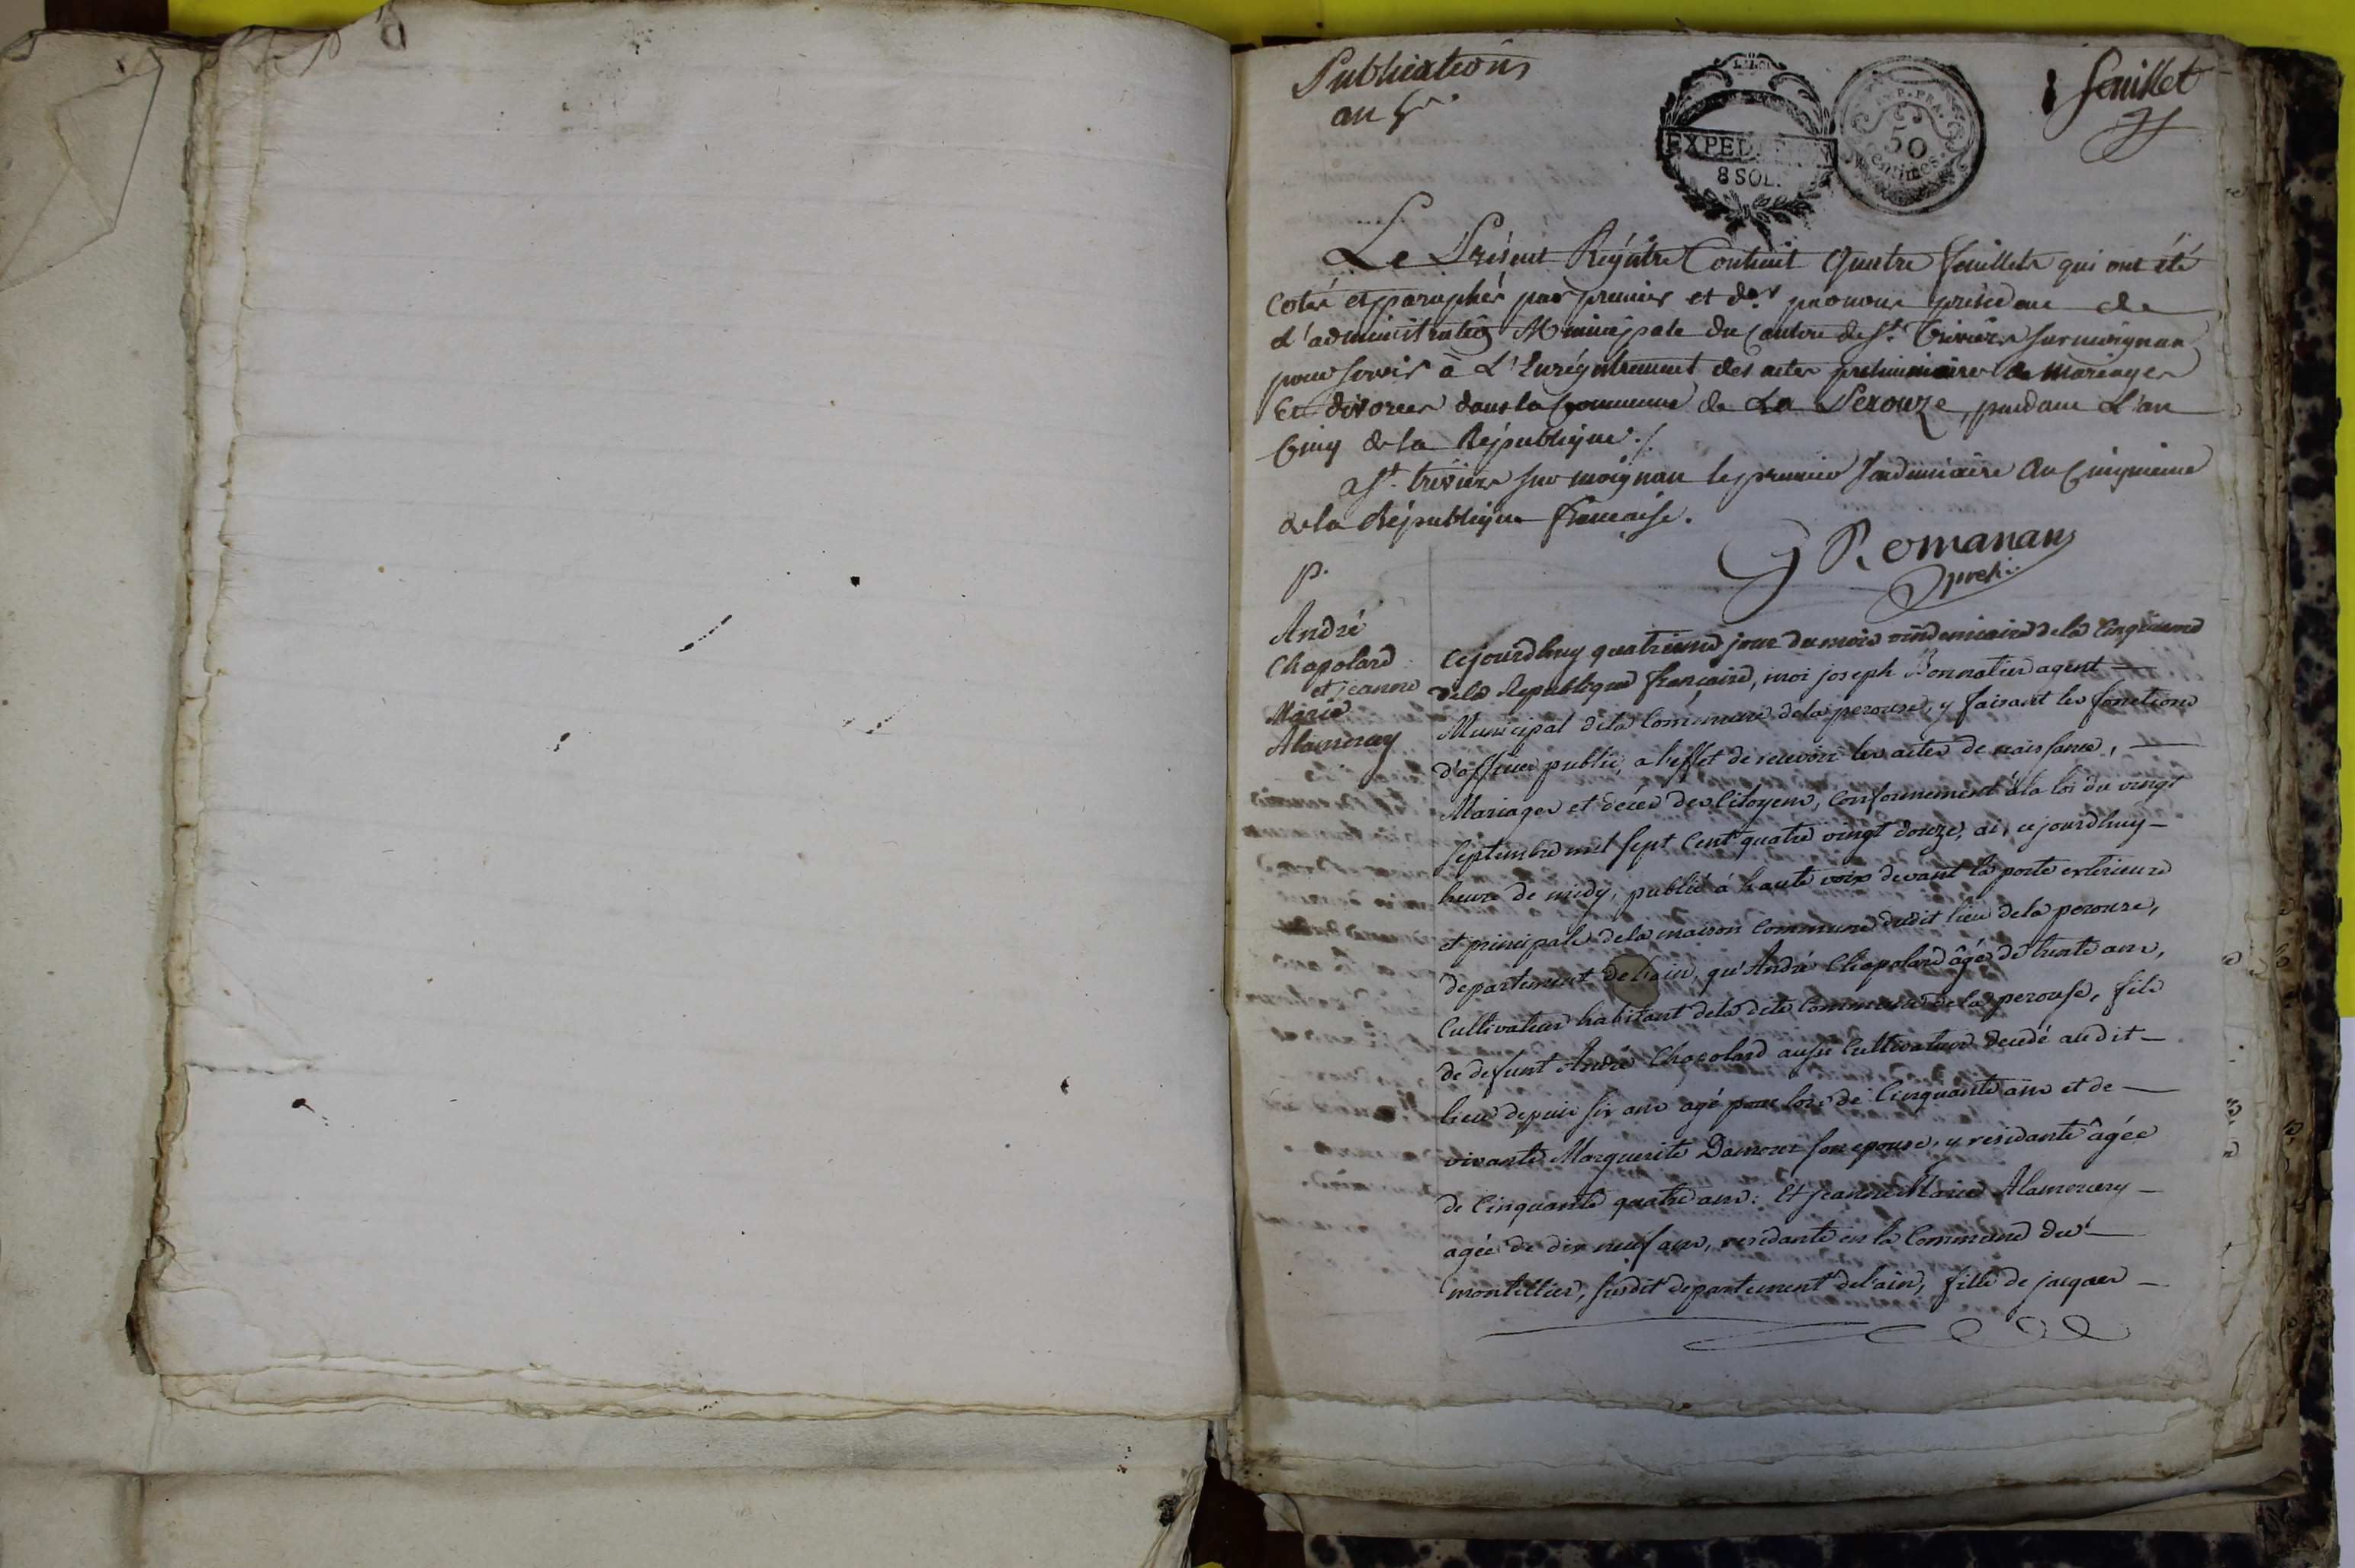 Publications
an 5e.
1 feuillet
LA LOI
EXPEDITION
8 SOL.
50
centimes
Le Présent Régistre Contient Quatre feuillets qui ont été
Cotés et paraphés par premier et der. par nous président de
L'administration Municipale du Canton de St. Trivier sur moignan
pour servir à L'Enrégistrement des actes préliminaires de Mariages
Et divorces dans la Commune de La Perouze, pendant L'an
Cinq de la République./.
a St. trivier sur moignan le premier Vendemiaire An Cinquieme
de la République française.
G Romanans
presi.
p.
André
Chapolard
et jeanne
Marie
Alamercery
Cejourdhuy quatrieme jour du mois vindemiaire de la Cinquieme
de la Republique française, moi joseph Bonnatier agent
Municipal de la Commune de la perouse, y faisant les fonctions
d'officier public, a l'effet de recevoir les actes de naissance,
Mariages et décès des Citoyens, Conformement à la loi du vingt
septembre mil sept Cent quatre vingt douze, ai, cejourdhuy
heure de midy, publié à haute voix devant la porte exterieure
et principale de la maison Commune dudit lieu de la perouse,
departement de l'ain, qu'André Chapolard âgé de trente ans,
Cultivateur habitant de la dite Commune de la perouse, fils
de defunt André Chapolard aussi Cultivateur decedé audit
lieu depuis six ans agé pour lors de Cinquante ans et de
vivante Marguerite Damour son epouse, y residante âgée
de Cinquante quatre ans: Et jeanne Marie Alamercery
agée de dix neuf ans, residante en la Commune du
montellier, susdit departement de l'ain, fille de jacques